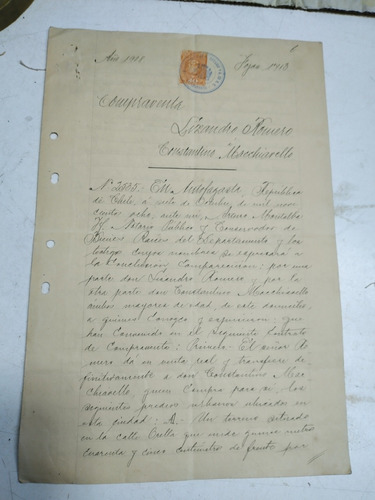 Año 1908 Fojas 1713
Compraventa
Lizandro Romero
Constantino Macchiavello
N° 2535. En Antofagasta, Republica
de Chile, á siete de Octubre, de mil nove
cientos ocho, ante mi,
Notario Publico y Conservador de
Bienes Raices del Departamento y los
testigos cuyos nombres se espresará a
la Conclusion, Comparecieron: por una
parte don Lisandro Romero y por la
otra parte don Constantino Macchiavello
ambos mayores de edad, de este domicilio,
a quienes Conozco y espusieron: que
han Convenido en el Seguiente Contrato
de Compraventa: Primero. El señor Ro
mero dá en venta real y transfiere de
finitivamente a don Constantino Mac
chiavello, quien Compra para si, los
seguientes predios urbanos ubicados en
esta ciudad: A. Un terreno situado
en la calle Orella que mide quince metros
cuarenta y cinco centimetros de frente por